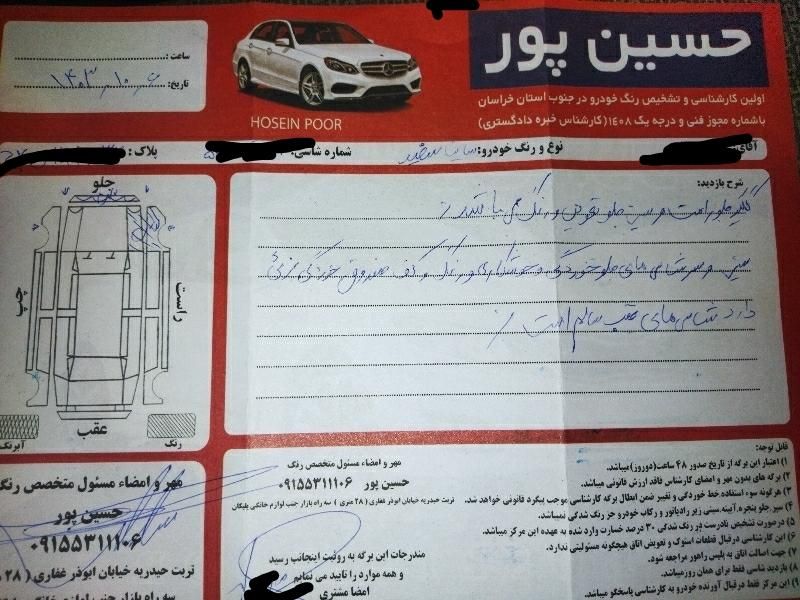 حسین پور
اولین کارشناسی و تشخیص رنگ خودرو در جنوب استان خراسان
باشماره مجوز فنی و درجه یک ۱۴۰۸ (کارشناس خبره دادگستری)
HOSEIN POOR
ساعت :
تاریخ: ۱۴۰۳،۱۰،۶
نوع و رنگ خودرو: سایپا سفید
شماره شاسی:
پلاک :
شرح بازدید:
گلگیر جلو راست و سینی جلو تعویض و رنگ می باشد
دارد شاسی های عقب سالم است
جلو
چپ
راست
عقب
رنگ
مهر و امضاء مسئول متخصص رنگ
حسین پور
۰۹۱۵۵۳۱۱۱۰۶
تربت حیدریه خیابان ابوذر غفاری ( ۲۸
سه راه بازار جنب لوازم خانگی
مهر و امضاء مسئول متخصص رنگ
حسین پور ۰۹۱۵۵۳۱۱۱۰۶
تربت حیدریه خیابان ابوذر غفاری ( ۲۸ متری ) سه راه بازار جنب لوازم خانگی پلیکان
مندرجات این برگه به روئیت اینجانب رسید
و همه موارد را تایید می نمایم
امضا مشتری
قابل توجه:
۱) اعتبار این برگه از تاریخ صدور ۴۸ ساعت(دوروز) میباشد.
۲) برگه های بدون مهر و امضای کارشناس فاقد ارزش قانونی میباشد.
۳) هرگونه سوء استفاده خط خوردگی و تغییر ضمن ابطال برگه کارشناسی موجب پیگرد قانونی خواهد شد.
۴) سپر، جلو پنجره، آیینه، سینی زیر رادیاتور و رکاب خودرو جز رنگ شدگی نمیباشد.
۵) درصورت تشخیص نادرست در رنگ شدگی ۳۰ درصد خسارت وارد شده به عهده این مرکز میباشد.
۶) این کارشناسی در قبال قطعات استوک و تعویض اتاق هیچگونه مسئولیتی ندارد.
۷) جهت اصالت اتاق به پلیس راهور مراجعه شود.
۸) بازدید شاسی فقط برای همان روز میباشد.
۹) این مرکز فقط درقبال آورنده خودرو به کارشناسی پاسخگو میباشد.